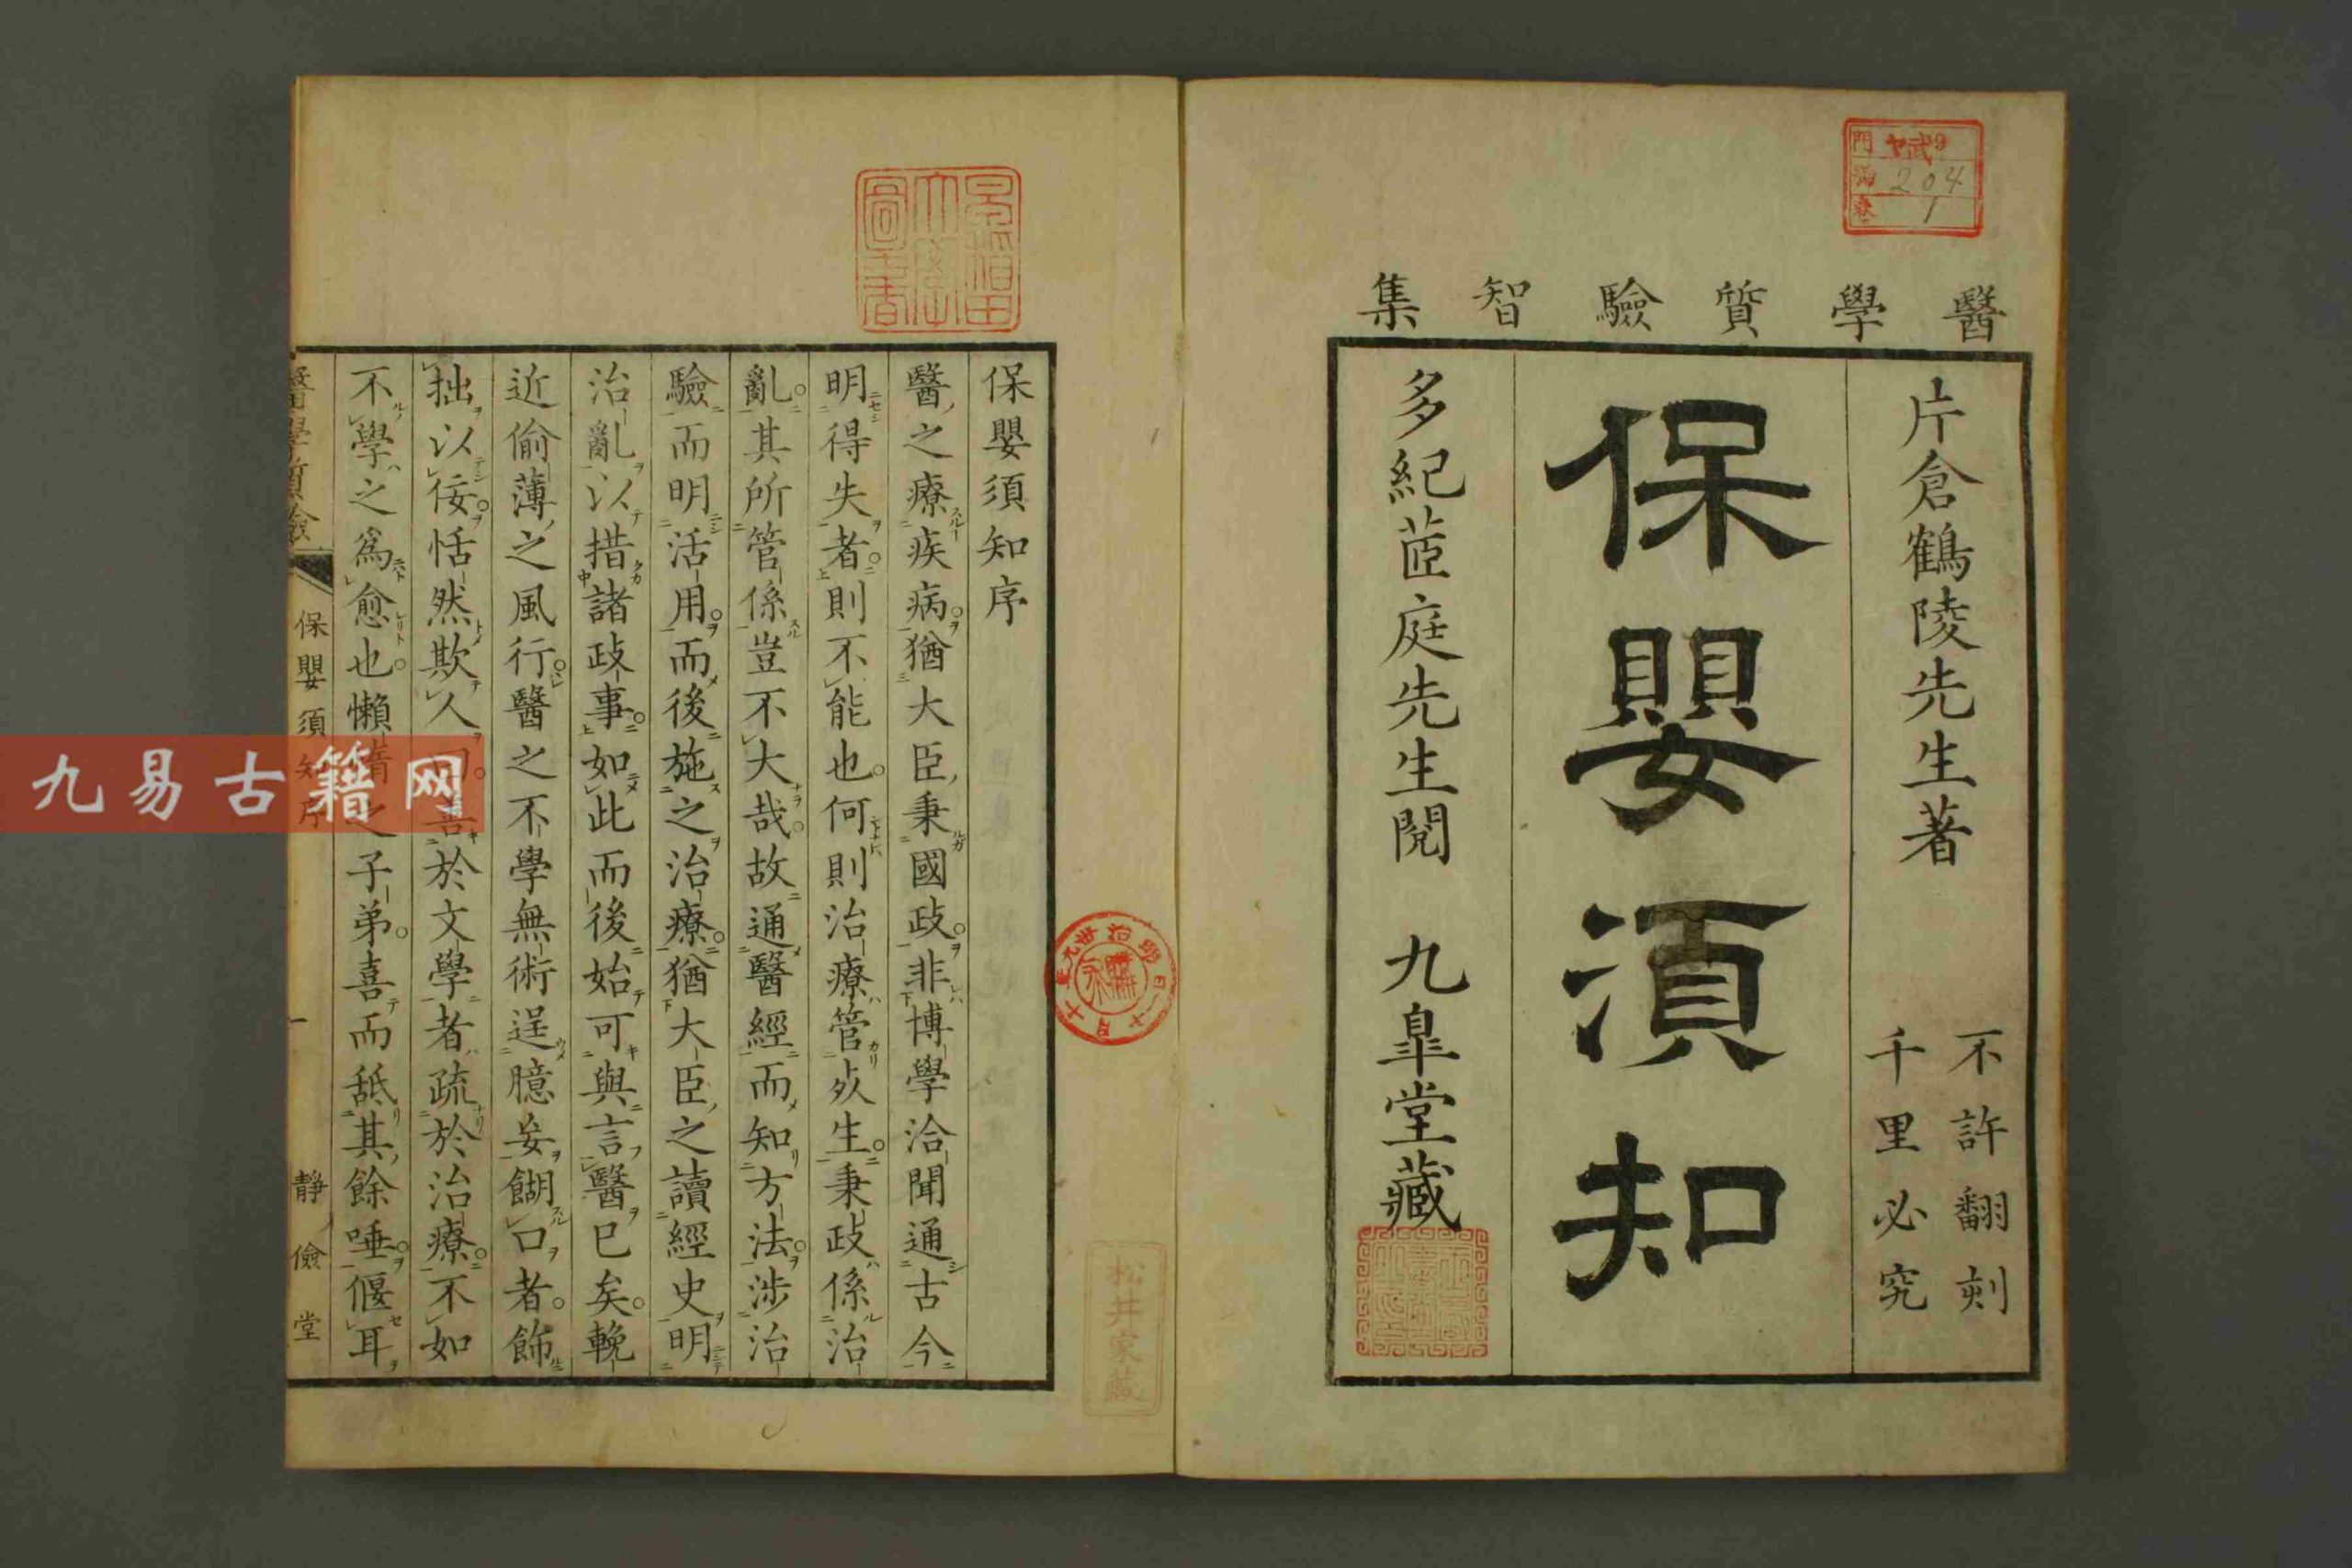 醫學質驗智集
片倉鶴陵先生著
不許翻刻
千里必究
保嬰須知
多紀茝庭先生閱 九皐堂藏
門 武9
號 204
卷 1
明治卅九年十月十二日
松井家藏
保嬰須知序
醫之療疾病猶大臣秉國政非博學洽聞通古今
明得失者則不能也何則治療管死生秉政係治
亂其所管係豈不大哉故通醫經而知方法涉治
驗而明活用而後施之治療猶大臣之讀經史明
治亂以措諸政事如此而後始可與言醫已矣輓
近偷薄之風行醫之不學無術逞臆妄餬口者飾
拙以佞恬然欺人曰善於文學者疏於治療不如
不學之爲愈也懶惰之子弟喜而舐其餘唾偃耳
醫學質驗 保嬰須知序 一 靜儉堂
九易古籍网